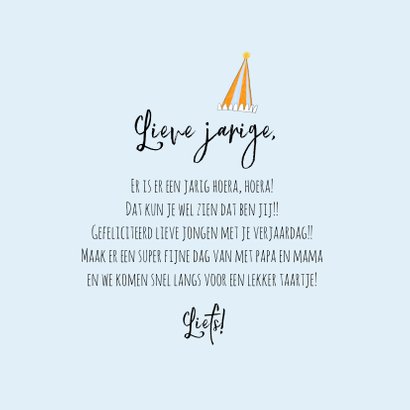 Lieve jarige,
Er is er een jarig hoera, hoera!
Dat kun je wel zien dat ben jij!!
Gefeliciteerd lieve jongen met je verjaardag!!
Maak er een super fijne dag van met papa en mama
en we komen snel langs voor een lekker taartje!
Liefs!